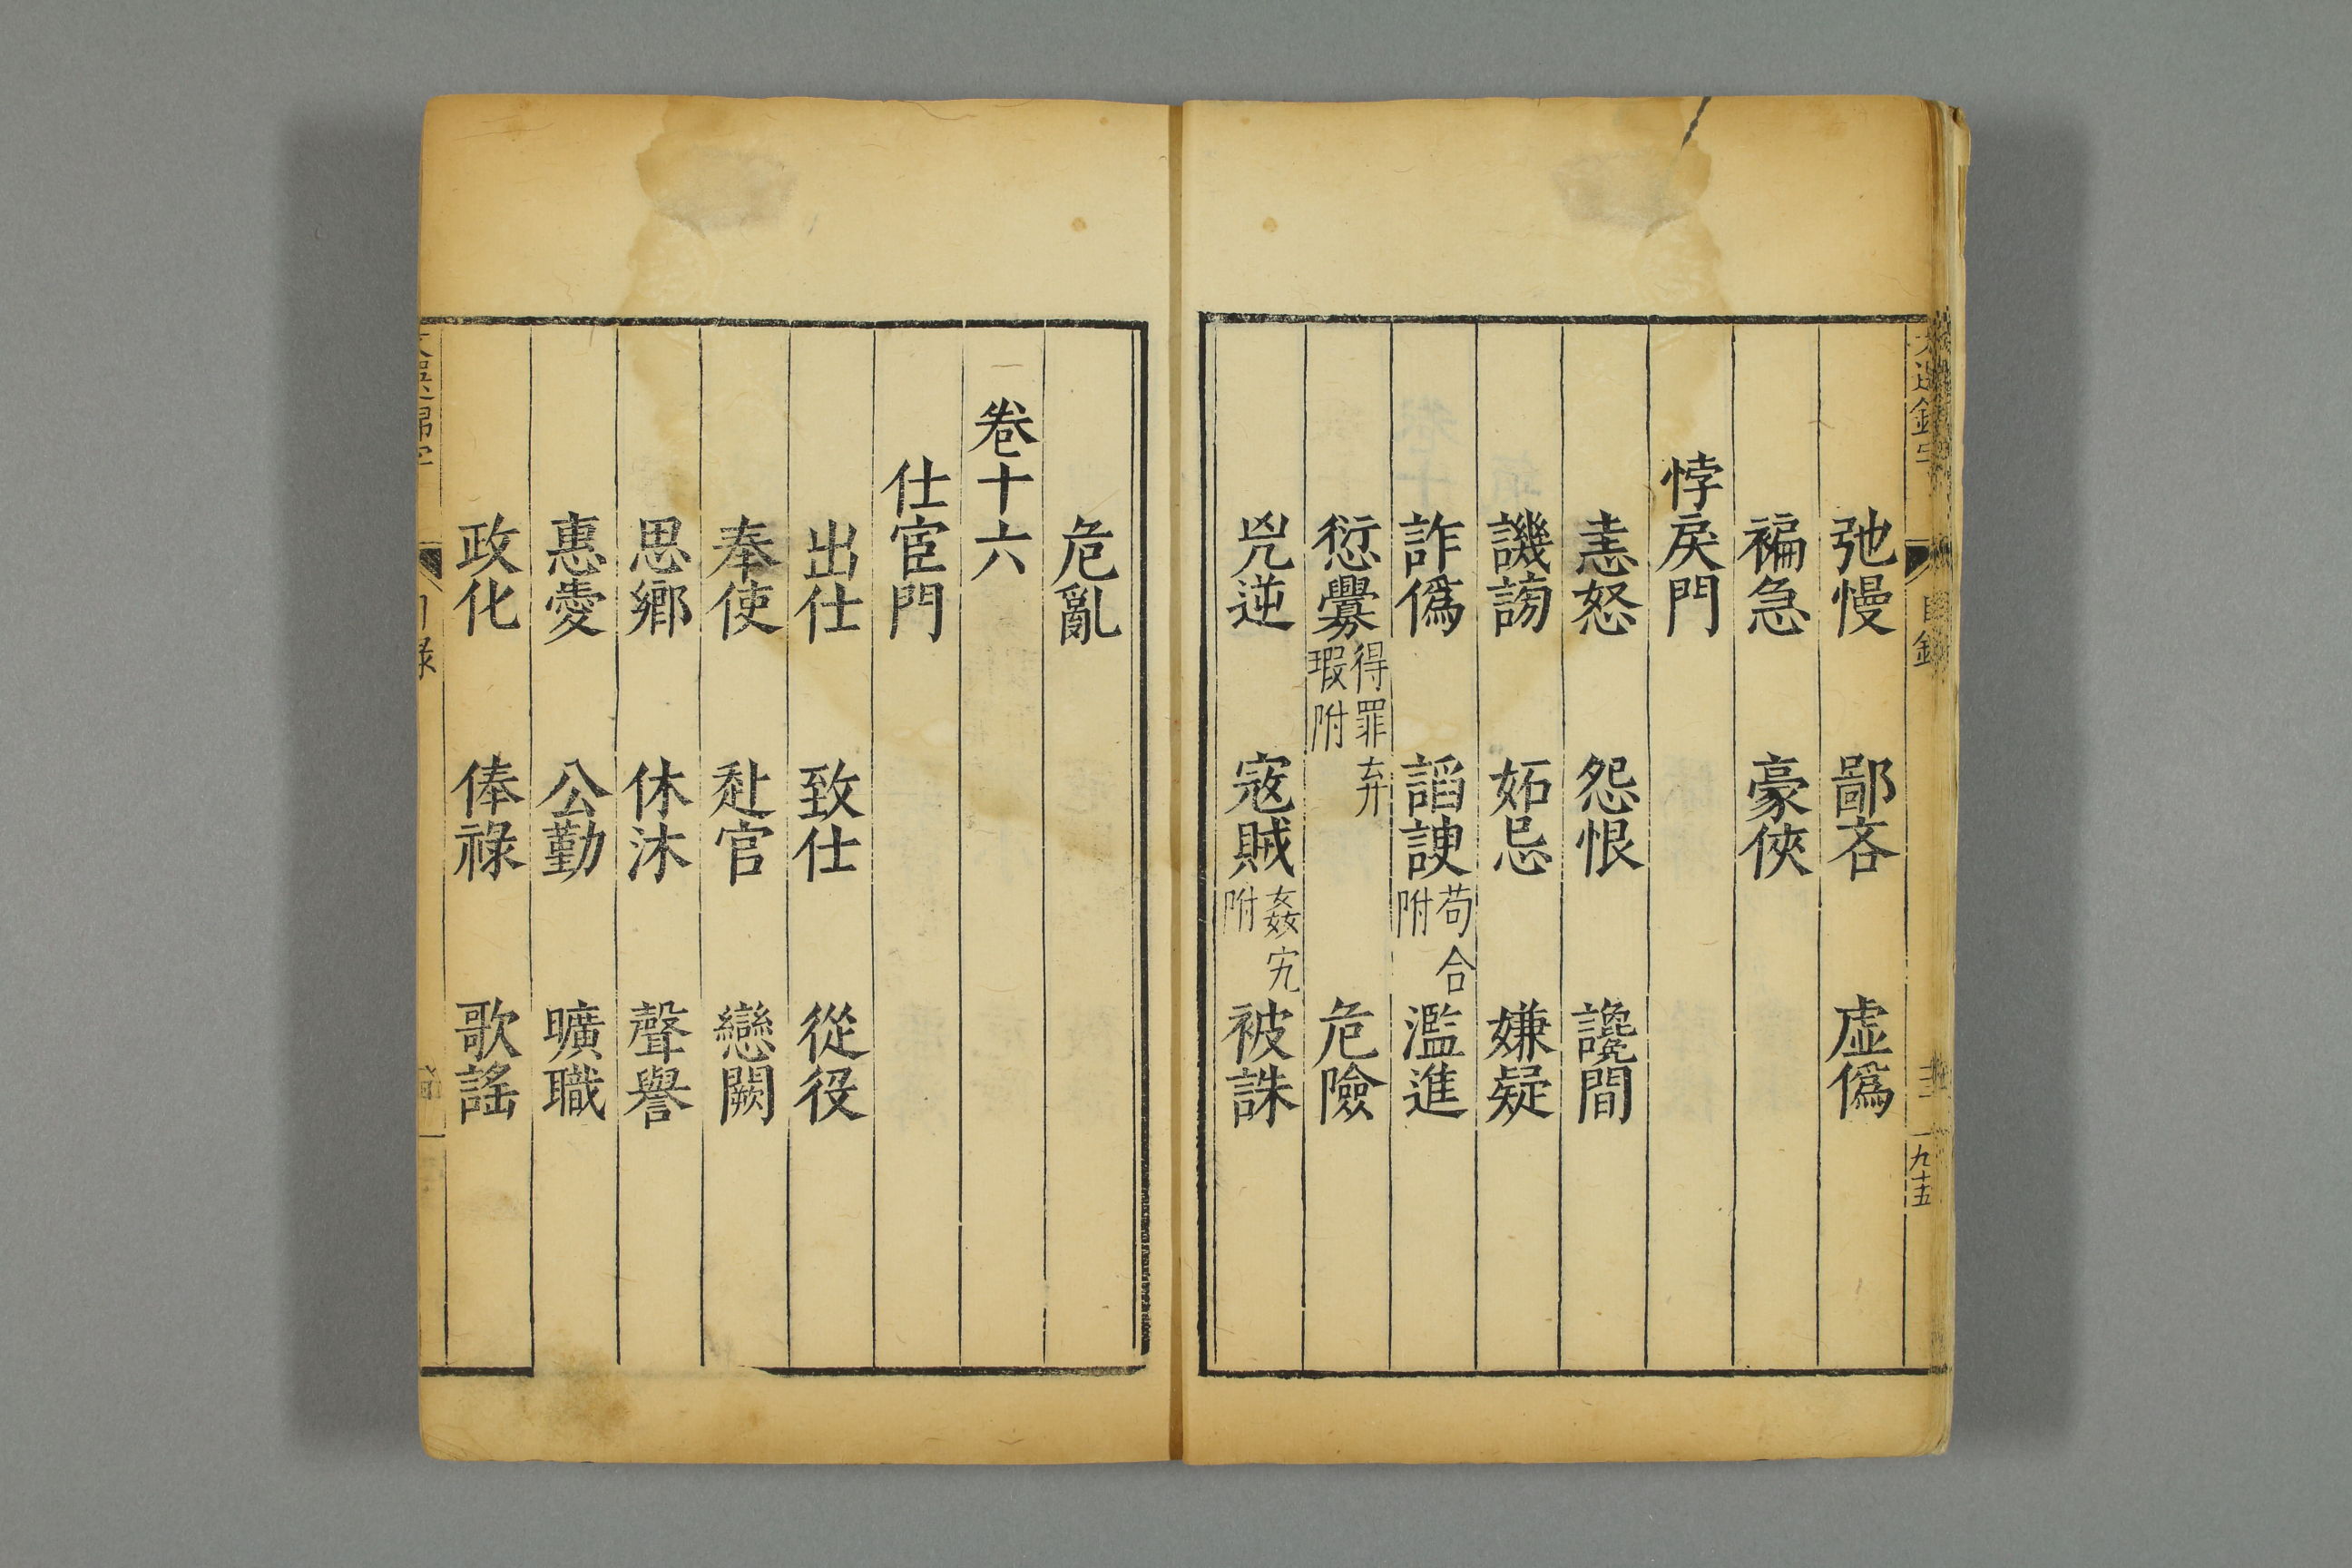 弛慢 鄙吝 虛僞
褊急 豪俠
悖戾門
恚怒 怨恨 讒間
譏謗 妬忌 嫌疑
詐僞 諂諛 苟合附 濫進
愆釁 得罪弃瑕附 危險
兇逆 寇賊 姦宄附 被誅
危亂
卷十六
仕宦門
出仕 致仕 從役
奉使 赴官 戀闕
思鄉 休沐 聲譽
惠愛 公勤 曠職
政化 俸祿 歌謠